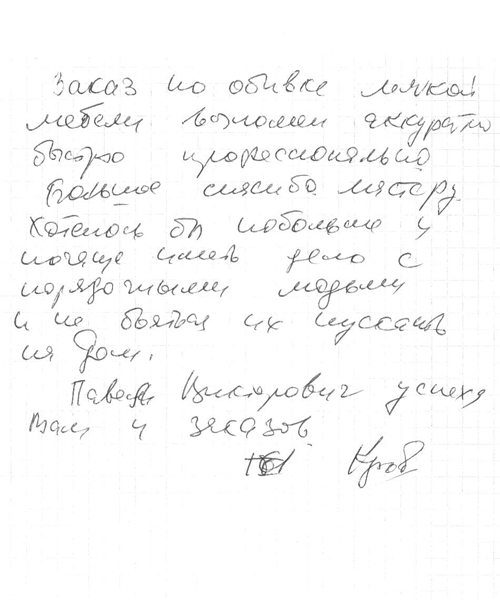 Заказ по обивке мягкой
мебели выполнен аккуратно
быстро профессионально
Большое спасибо мастеру.
Хотелось бы побольше и
почаще иметь дело с
порядочными людьми
и не бояться их пускать
на дом.
Павел Викторович успеха
Вам и заказов